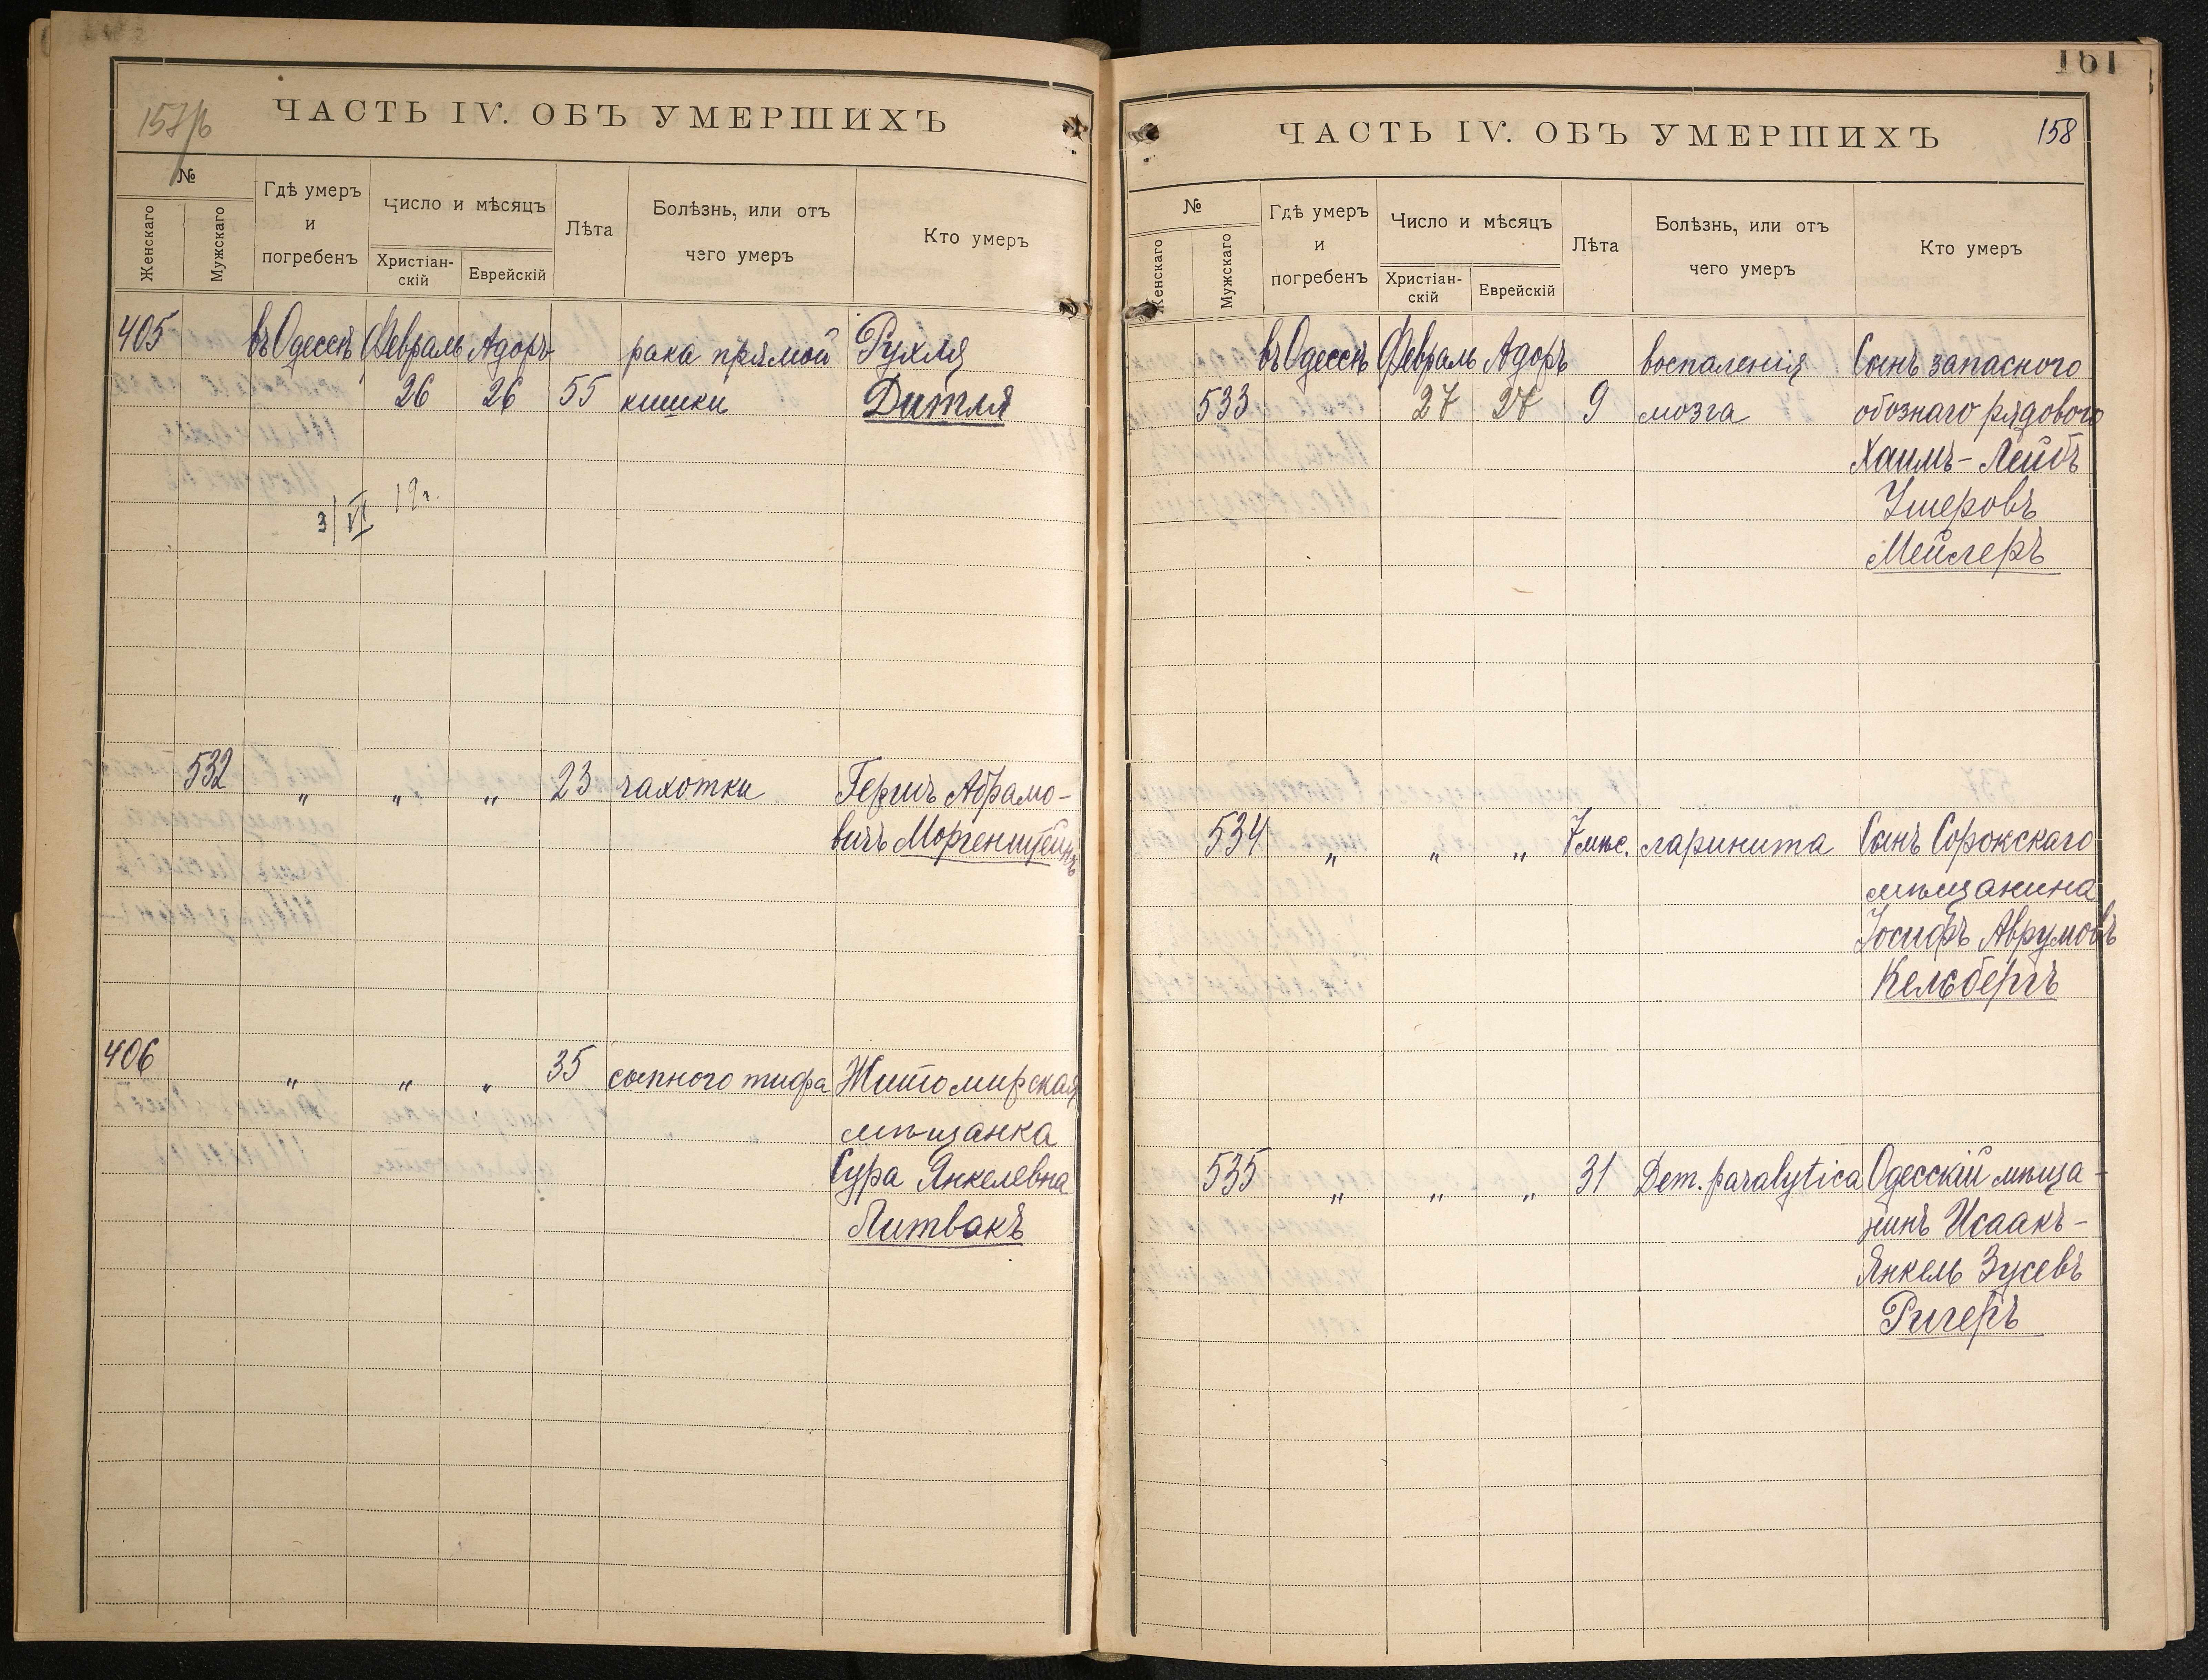 ЧАСТЬ IV. ОБЪ УМЕРШИХЪ
№
Женскаго
Мужскаго
Гдѣ умеръ
и
погребенъ
Число и мѣсяцъ
Христіан-
скій
Еврейскій
Лѣта
Болѣзнь, или отъ
чего умеръ
Кто умеръ
405 въ Одессѣ Февраль Адоръ рака прямой Рухля
26 26 55 кишки Дитля
3/VI 19 г.
532 „ „ „ 23 чахотки Гершъ Абрамо-
вичъ Моргенштейнъ
406 „ „ „ 35 сыпного тифа Житомирская
мѣщанка
Сура Янкелевна
Литвакъ
161
ЧАСТЬ IV. ОБЪ УМЕРШИХЪ 158
№
Женскаго
Мужскаго
Гдѣ умеръ
и
погребенъ
Число и мѣсяцъ
Христіан-
скій
Еврейскій
Лѣта
Болѣзнь, или отъ
чего умеръ
Кто умеръ
въ Одессѣ Февраль Адоръ воспаленія Сынъ запасного
533 27 27 9 мозга обознаго рядового
Хаимъ-Лейбъ
Умеровъ
Мейлеръ
534 „ „ „ 7 мѣс. ларинита Сынъ Сорокскаго
мѣщанина
Іосифъ Аврумовъ
Кельбергъ
535 „ „ „ 31 Dem. paralytica Одесскій мѣща-
нинъ Исаакъ-
Янкель Зусевъ
Ригеръ